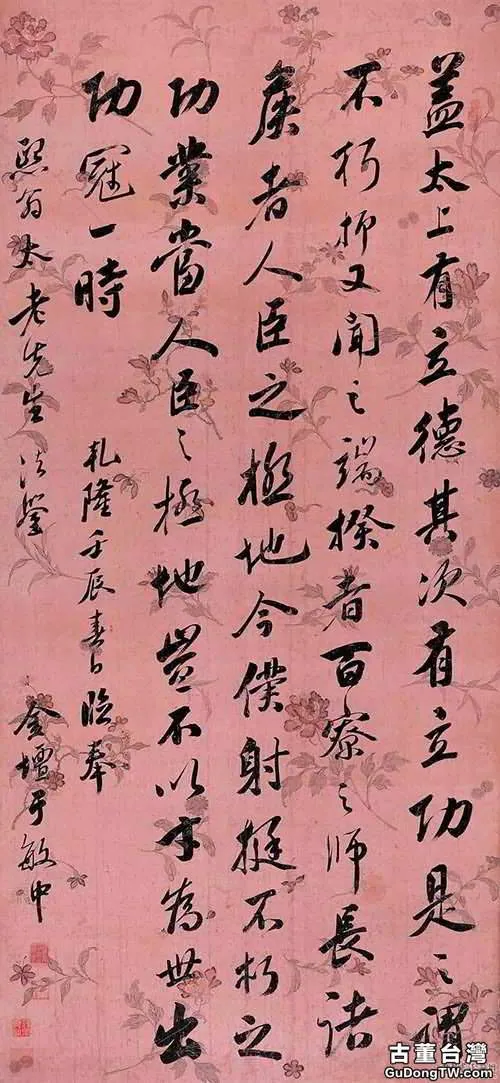 盖太上有立德其次有立功是之謂
不朽抑又聞之端揆者百寮之師長諸
矦者人臣之極地今僕射挺不朽之
功業當人臣之極地豈不以才為世出
功冠一時
乾隆壬辰春日臨奉
熙翁太老先生法鑒
金壇于敏中
古董台灣
GuDongTW.com